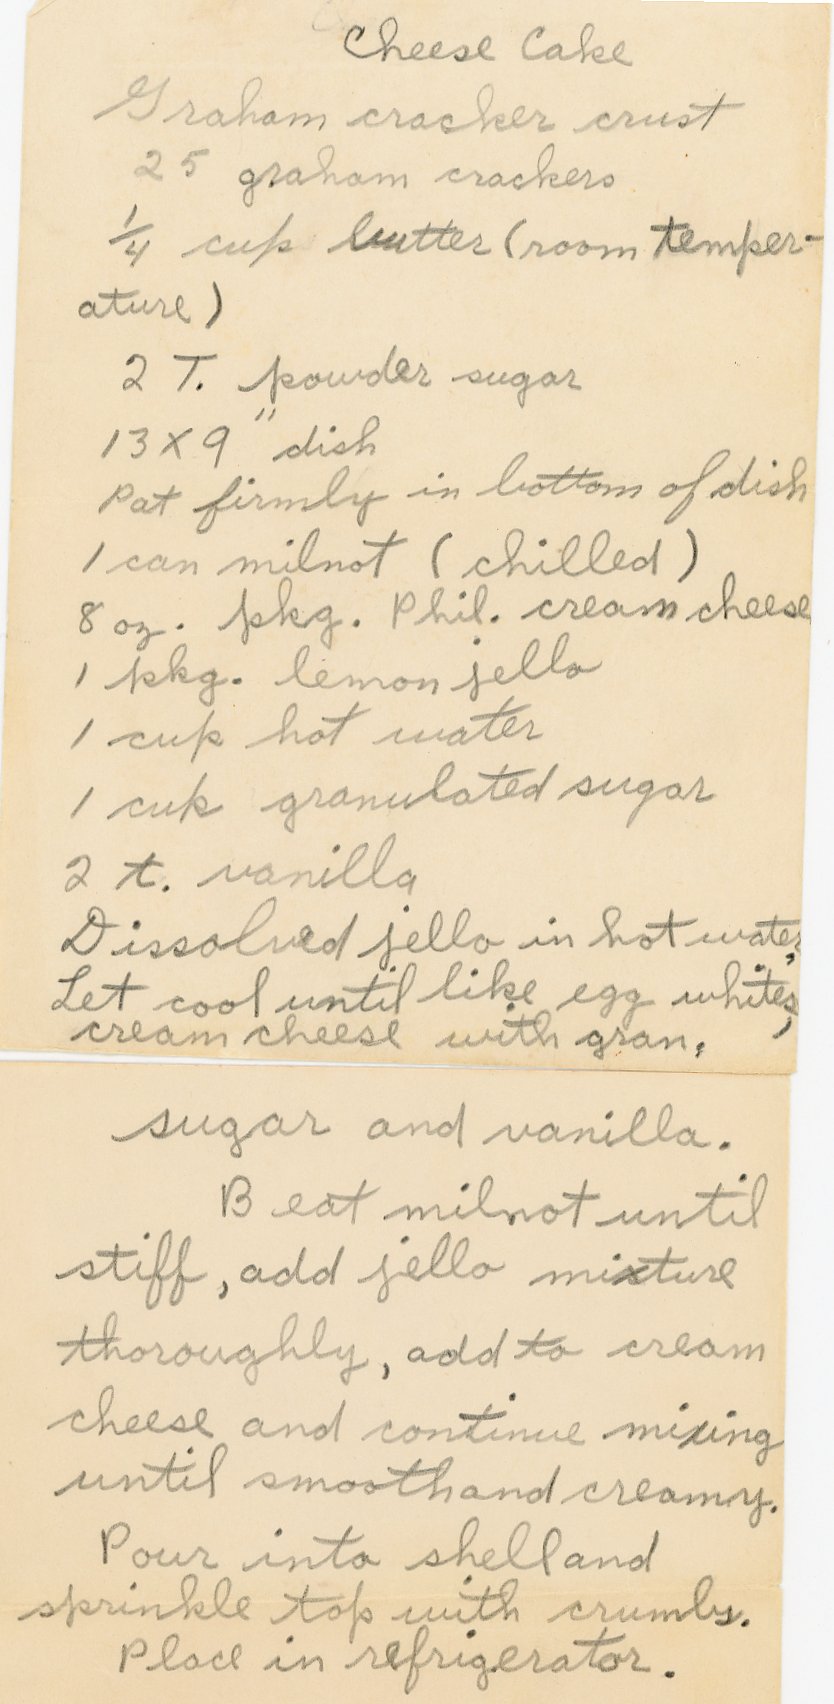 Cheese Cake
Graham cracker crust
25 graham crackers
1/4 cup butter (room temper-
ature)
2 T. powder sugar
13 x 9" dish
Pat firmly in bottom of dish
1 can milnot (chilled)
8 oz. pkg. Phil. cream cheese
1 pkg. lemon jello
1 cup hot water
1 cup granulated sugar
2 t. vanilla
Dissolved jello in hot water,
Let cool until like egg whites,
cream cheese with gran.
sugar and vanilla.
Beat milnot until
stiff, add jello mixture
thoroughly, add to cream
cheese and continue mixing
until smooth and creamy.
Pour into shell and
sprinkle top with crumbs.
Place in refrigerator.